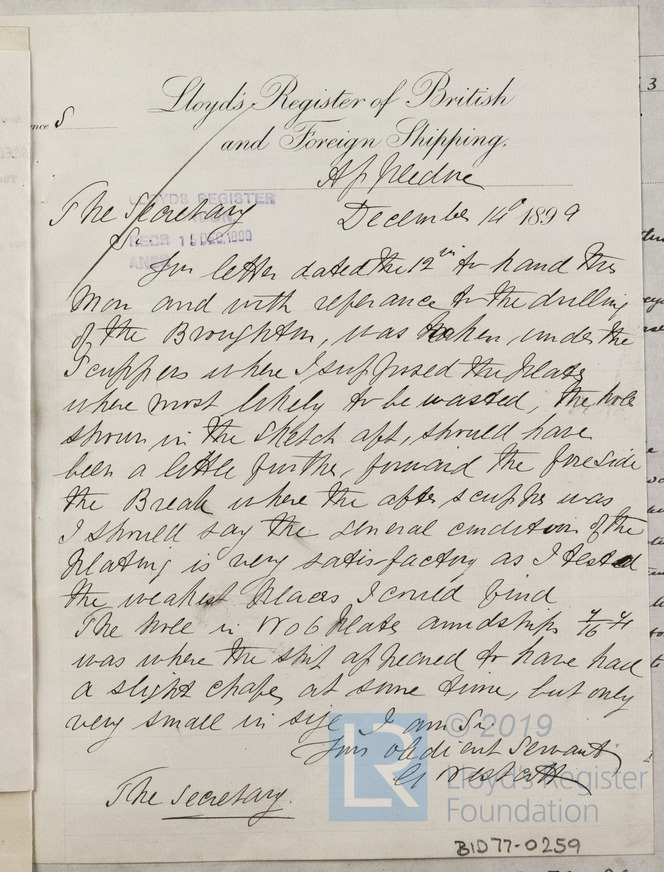 Lloyd's Register of British
and Foreign Shipping.
Appledore
The Secretary
December 14th 1899
LLOYDS REGISTER
RECD 15 DEC. 1899
ANSD
Sir
Your letter dated the 12th to hand this
Mor and with referance to the drilling
of the Broughton, was taken under the
Scuppers where I supposed the plates
where most likely to be wasted, the hole
shown in the sketch aft, should have
been a little further, forward the foreside
the Break where the after scupper was
I should say the general condition of the
plating is very satisfactory as I tested
the weakest places I could find
The hole in No 6 Plate amidships 7/16
was where the ship appeared to have had
a slight chafe, at some time, but only
very small in size I am Sir
Your obedient Servant
The Secretary.
LR © 2019
Lloyd's Register
Foundation
BID77-0259
3